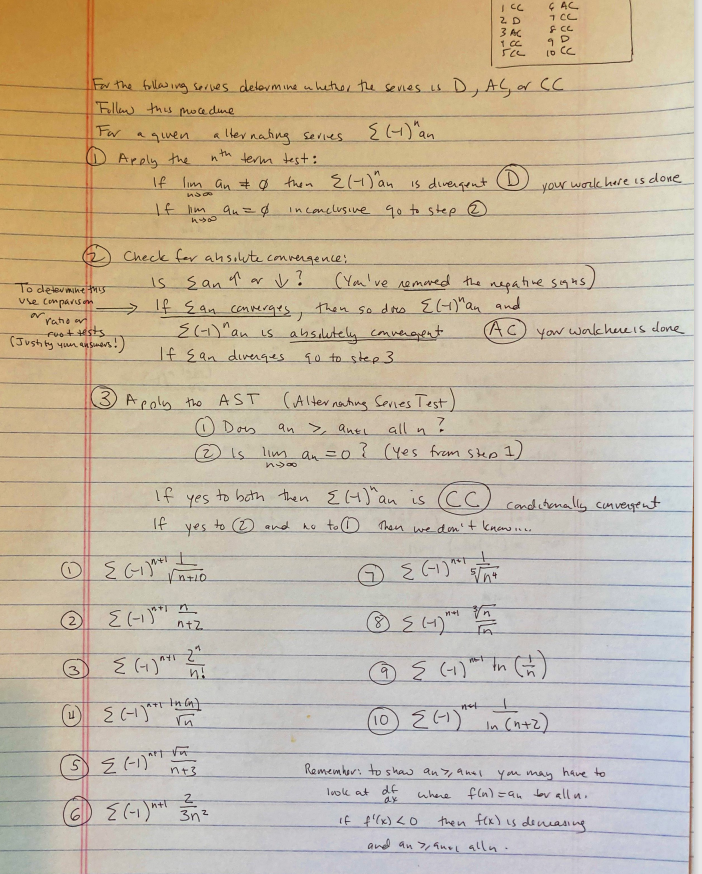 1 CC 6 AC
2 D 7 CC
3 AC 8 CC
4 CC 9 D
5 CC 10 CC
For the following series determine whether the series is D, AC, or CC
Follow this procedure
For a given alternating series Σ(-1)^n an
① Apply the nth term test:
If lim n→∞ an ≠ ∅ then Σ(-1)^n an is divergent Ⓓ your work here is done
If lim n→∞ an = ∅ inconclusive go to step ②
② Check for absolute convergence:
Is Σan ↑ or ↓? (You've removed the negative signs)
To determine this
use comparison
or ratio or
root tests
(Justify your answers!)
→ If Σan converges, then so does Σ(-1)^n an and
Σ(-1)^n an is absolutely convergent (AC) your work here is done
If Σan diverges go to step 3
③ Apply the AST (Alternating Series Test)
① Does an ≥ an+1 all n?
② Is lim n→∞ an = 0? (Yes from step 1)
If yes to both then Σ(-1)^n an is (CC) conditionally convergent
If yes to ② and no to ① Then we don't know...
① Σ(-1)^n+1 1/√(n+10)
② Σ(-1)^n+1 n/(n+2)
③ Σ(-1)^n+1 2^n/n!
④ Σ(-1)^n+1 ln(n)/√n
⑤ Σ(-1)^n+1 √n/(n+3)
⑥ Σ(-1)^n+1 2/3n²
⑦ Σ(-1)^n+1 1/⁵√n⁴
⑧ Σ(-1)^n+1 ³√n/√n
⑨ Σ(-1)^n+1 ln(1/n)
⑩ Σ(-1)^n+1 1/ln(n+2)
Remember: to show an ≥ an+1 you may have to
look at df/dx where f(n) = an for all n.
if f'(x) < 0 then f(x) is decreasing
and an ≥ an+1 all n.